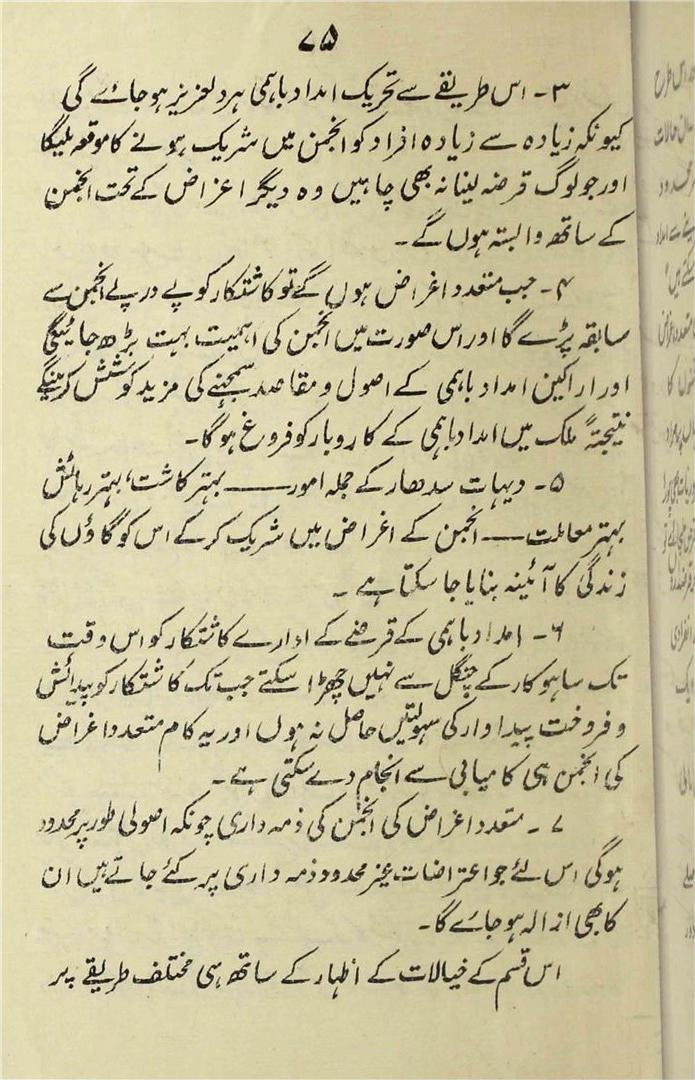 ۷۵
۳ - اس طریقے سے تحریک امداد باہمی ہردلعزیز ہو جائے گی
کیونکہ زیادہ سے زیادہ افراد کو انجمن میں شریک ہونے کا موقعہ ملیگا
اور جو لوگ قرضہ لینا نہ بھی چاہیں وہ دیگر اعراض کے تحت انجمن
کے ساتھ وابستہ ہوں گے ۔
۴ - جب متعدد اغراض ہوں گے تو کاشتکار کو پے در پے انجمن سے
سابقہ پڑے گا اور اس صورت میں انجمن کی اہمیت بہت بڑھ جائیگی
اور اراکین امداد باہمی کے اصول و مقاصد سمجھنے کی مزید کوشش کرینگے
نتیجتہً ملک میں امداد باہمی کے کاروبار کو فروغ ہوگا۔
۵ - دیہات سدھار کے جملہ امور —— بہتر کاشت، بہتر رہائش
بہتر معاملت —— انجمن کے اغراض میں شریک کرکے اس کو گاؤں کی
زندگی کا آئینہ بنایا جا سکتا ہے ۔
۶ - امداد باہمی کے قرضے کے ادارے کاشتکار کو اس وقت
تک ساہوکار کے چنگل سے نہیں چھڑا سکتے جب تک کاشتکار کو پیدائش
و فروخت پیداوار کی سہولتیں حاصل نہ ہوں اور یہ کام متعدد اغراض
کی انجمن ہی کامیابی سے انجام دے سکتی ہے ۔
۷ - متعدد اغراض کی انجمن کی ذمہ داری چونکہ اصولی طور پر محدود
ہوگی اس لئے جو اعتراضات غیر محدود ذمہ داری پر کئے جاتے ہیں ان
کا بھی ازالہ ہو جائے گا۔
اس قسم کے خیالات کے اظہار کے ساتھ ہی مختلف طریقے پر